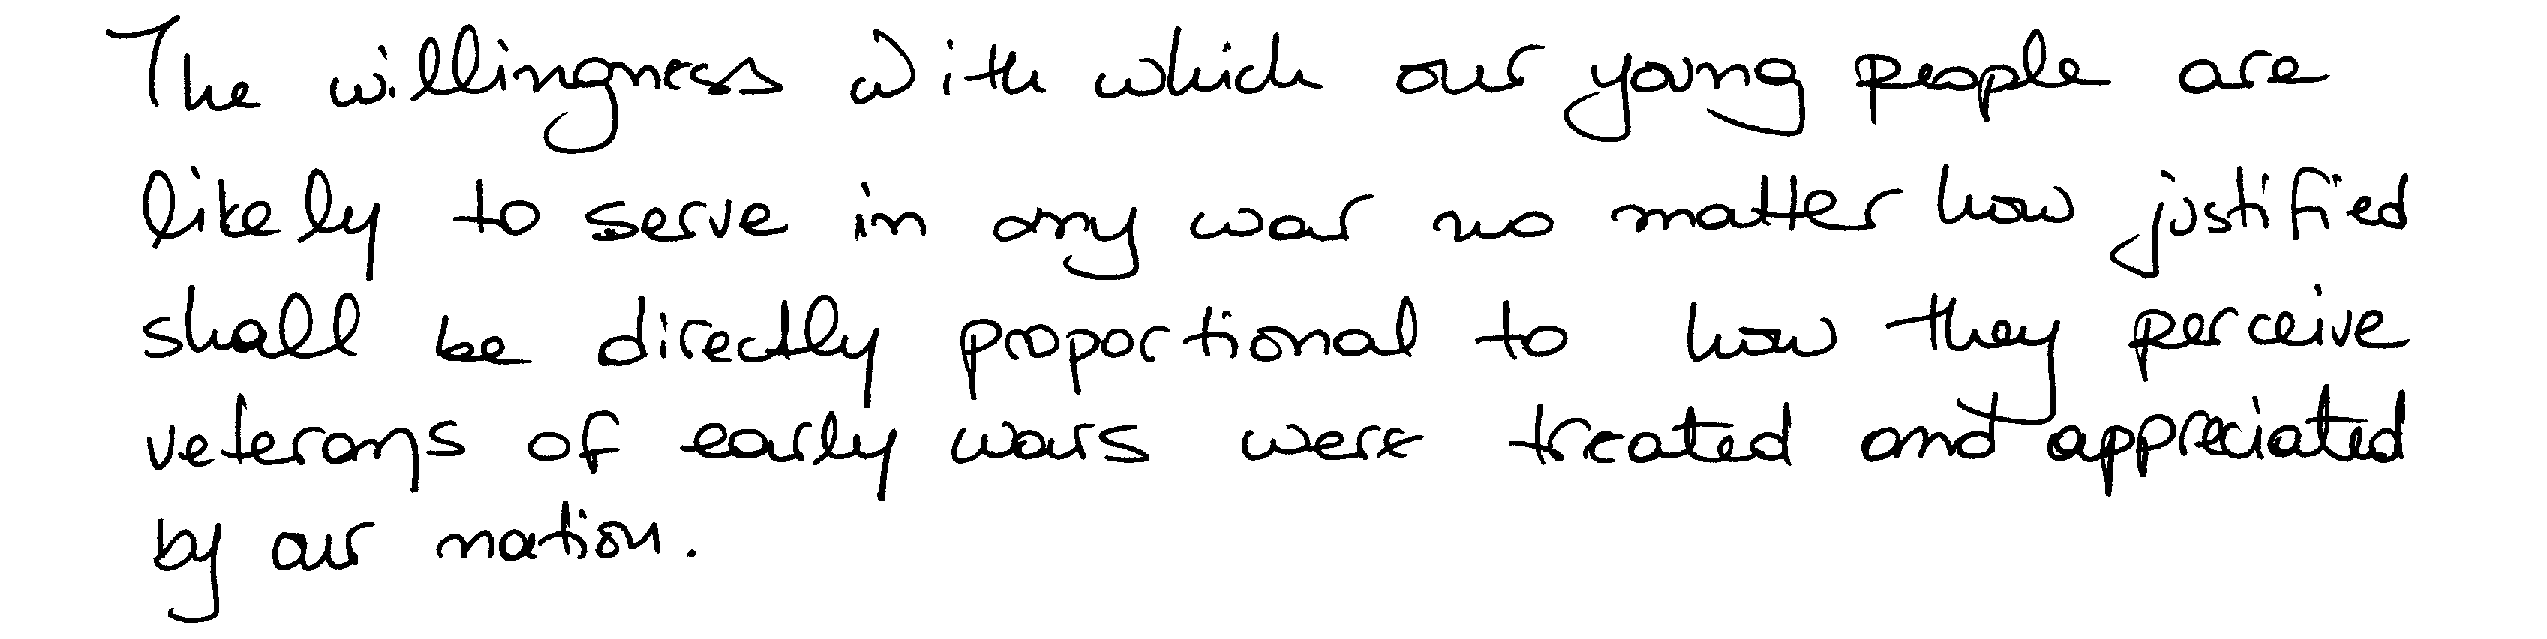 The willingness with which our young people are
likely to serve in any war no matter how justified
shall be directly proportional to how they perceive
veterans of early wars were treated and appreciated
by our nation.